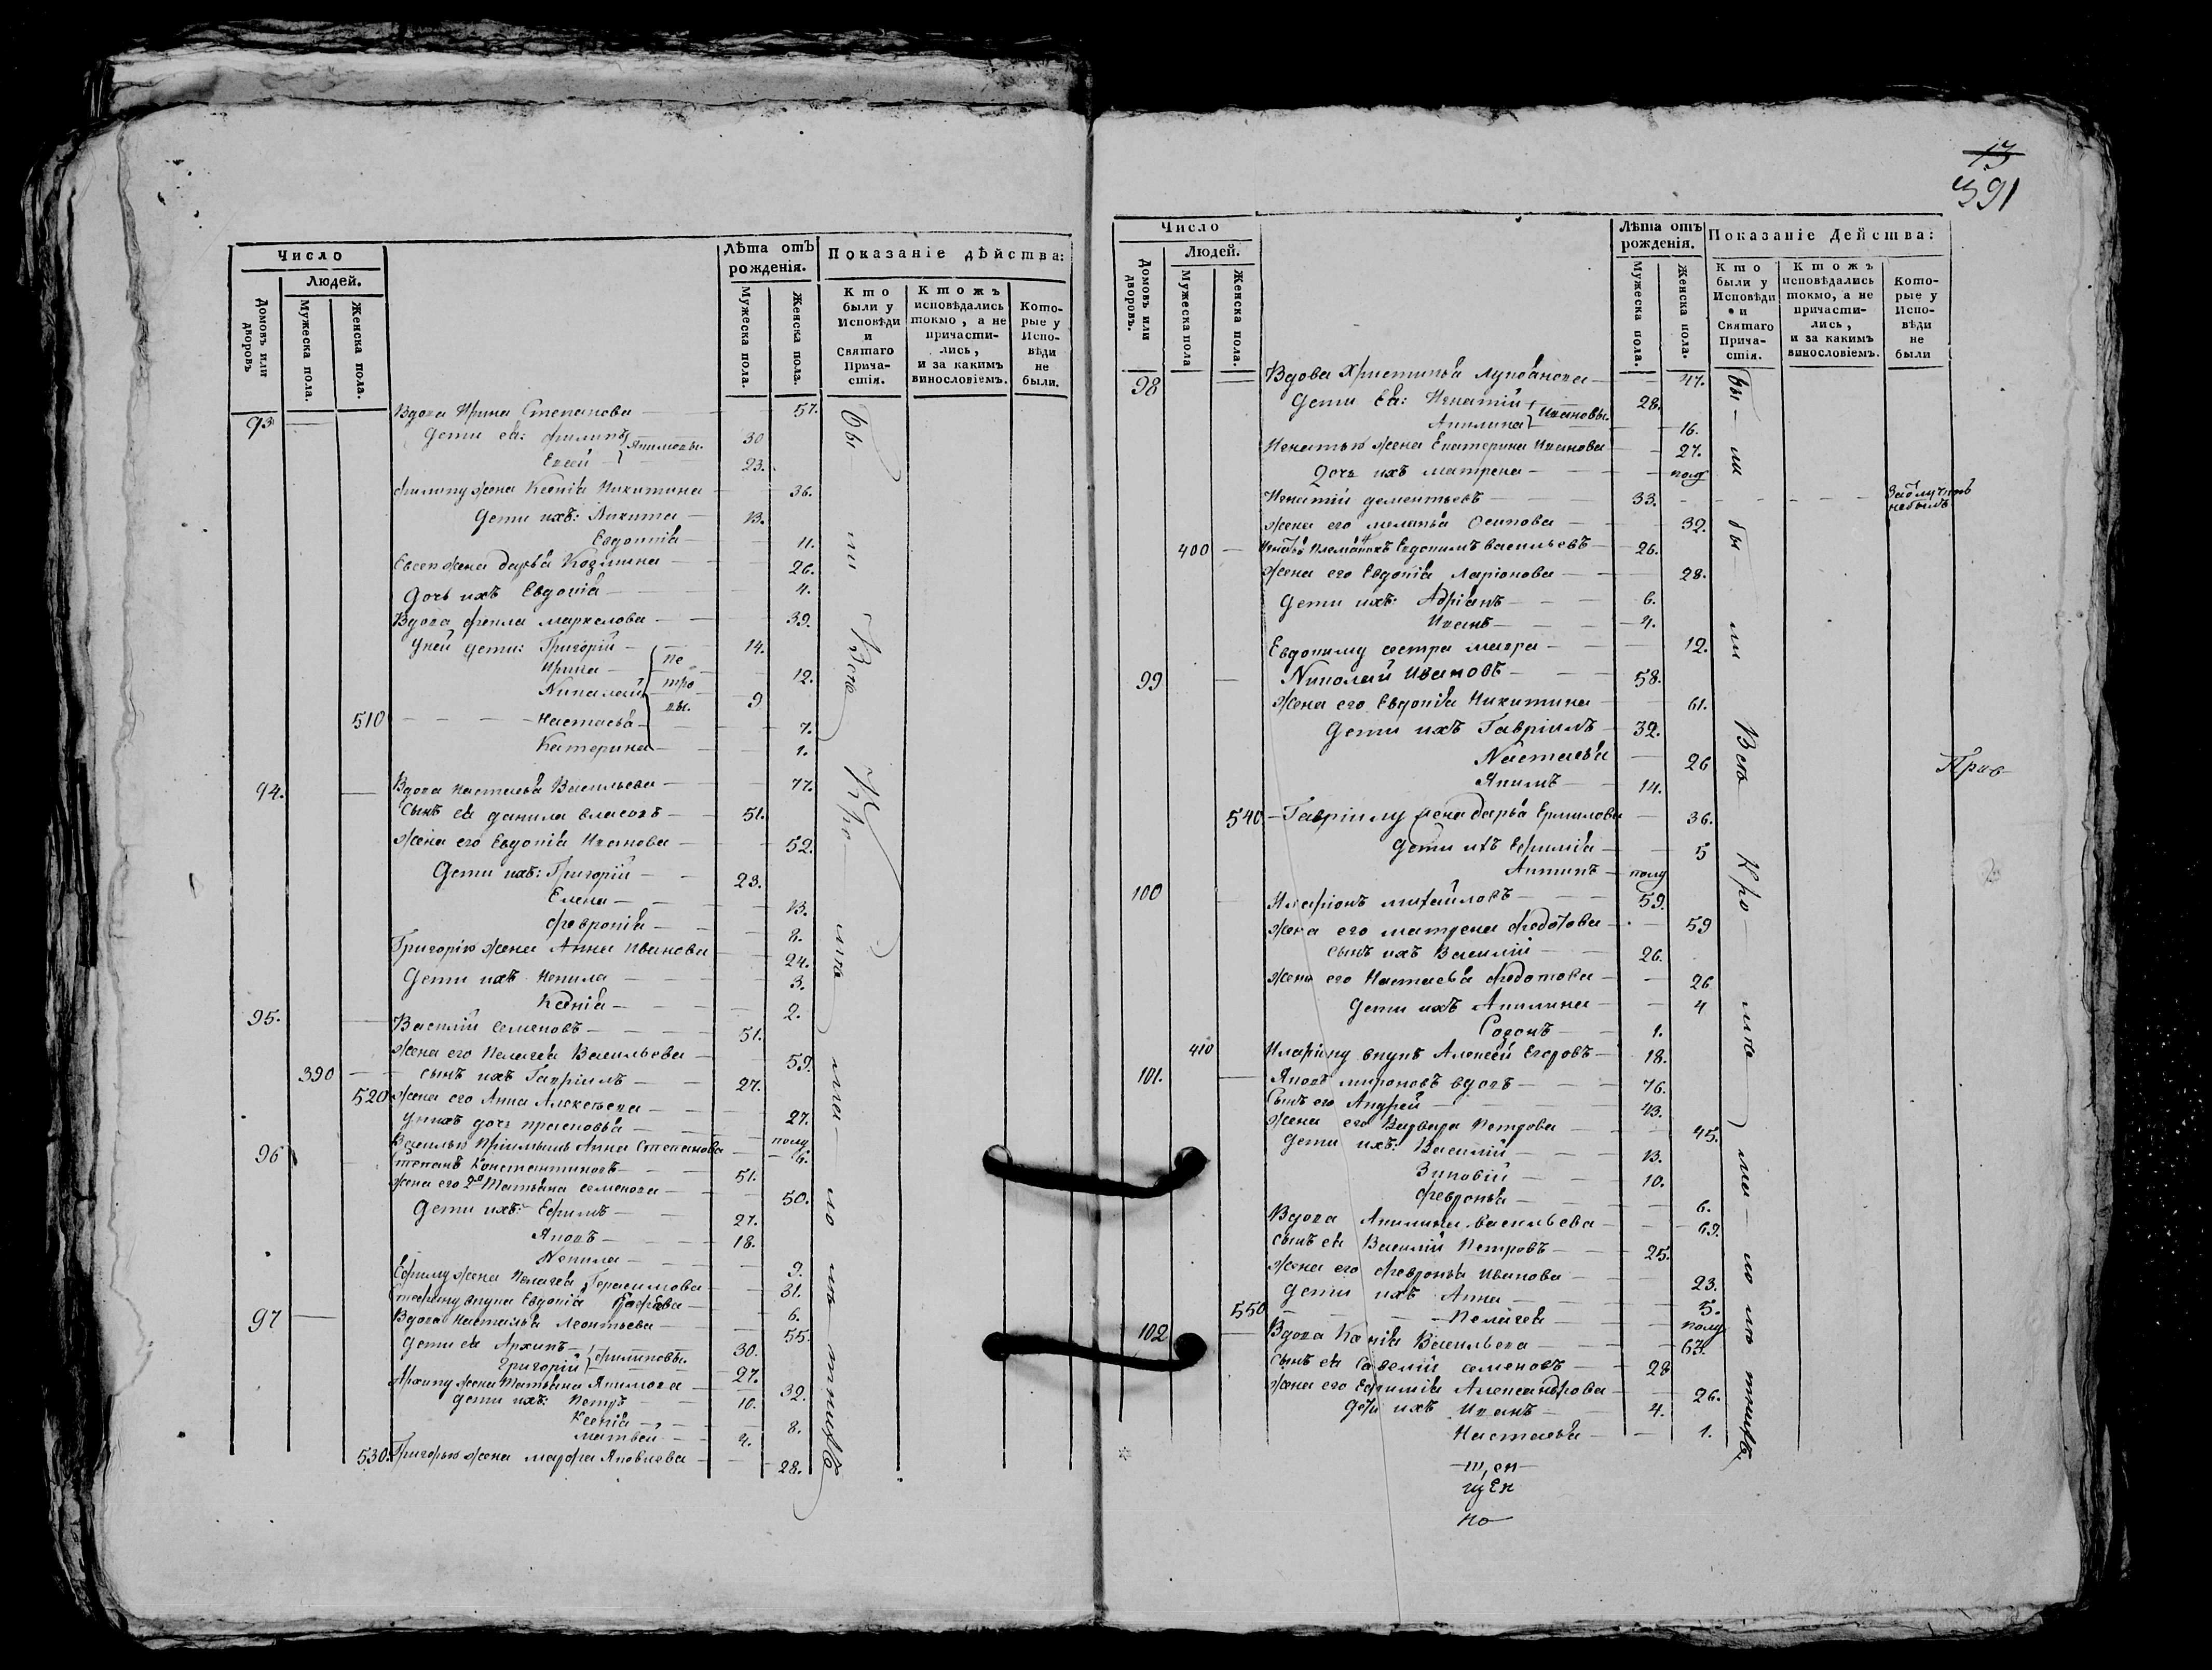 Число
Людей.
Домовъ или дворовъ
Мужеска пола.
Женска пола.
Лѣта отъ рожденія.
Мужеска пола.
Женска пола.
Показаніе дѣйства:
Кто были у Исповѣди и Святаго Причастія.
Ктожъ исповѣдались токмо, а не причастились, и за какимъ винословіемъ.
Которые у Исповѣди не были.
93 Вдова Ирина Степанова 57.
Дети ея: Филипъ 30
Евсей } Якимовы. 23.
Филипу жена Ксенія Никитина 36.
Дети ихъ: Никита 13.
Евдокія 11.
Евсею жена Дарья Козмина 26.
Дочь ихъ Евдокія 4.
Вдова Фекла Маркелова 39.
У ней дети: Григорій 14.
Ирина 12.
Николай 9
510 Настасья 7.
Катерина 1.
Петровы.
94. Вдова Настасья Васильева 77.
Сынъ ея Данила Власовъ 51.
Жена его Евдокія Иванова 52.
Дети ихъ: Григорій 23.
Елена 13.
Февронія 8.
Григорію жена Анна Иванова 24.
Дети ихъ Ненила 3.
Ксенія 2.
95. Василій Семеновъ 51.
Жена его Пелагея Васильева 59.
390 Сынъ ихъ Гавріилъ 27.
520 Жена его Анна Алексеева 27.
У нихъ дочь Прасковья полу
Василью Анна Степанова 6.
96 Степанъ Константиновъ 51.
Жена его 2я Татьяна Семенова 50.
Дети ихъ: Ефимъ 27.
Яковъ 18.
Ненила 9.
Ефиму жена Пелагея Герасимова 31.
внука Евдокія 6.
97 Вдова Настасья Леонтьева 55.
Дети ея Архипъ 30.
Григорій } Филиповы. 27.
Архипу жена Татьяна Якимова 32.
Дети ихъ: Петръ 10.
Ксенія 8.
Матвей 4.
530. Григорью жена Марфа Яковлева 28.
бы ли Всѣ Кро мѣ ма ло лѣ тнихъ
13
391
Число
Людей.
Домовъ или дворовъ.
Мужеска пола
Женска пола.
Лѣта отъ рожденія.
Мужеска пола.
Женска пола.
Показаніе Действа:
Кто были у Исповѣди и Святаго Причастія.
Ктожъ исповѣдались токмо, а не причастились, и за какимъ винословіемъ.
Которые у Исповѣди не были
98 Вдова Христинья 47.
Дети ея: Игнатій 28.
Акилина } Ивановы. 16.
Игнатью жена Екатерина Иванова 27.
Дочь ихъ Матрена полу
Игнатій Дементьевъ 33.
не былъ
Жена его Меланья Осипова 32.
400 Евдокимъ Васильевъ 26.
Жена его Евдокія Ларіонова 28.
Дети ихъ: Адріанъ 6.
Иванъ 4.
Евдокиму сестра Мавра 12.
99 Николай Ивановъ 58.
Жена его Евдокія Никитина 61.
Дети ихъ Гавріилъ 32.
Настасья 26
Якимъ 14.
540 Гавріилу жена Дарья Ермилова 36.
Дети ихъ Ефимія 5
Антипъ полу
100 Иларіонъ Михайловъ 59.
Жена его Матрена Федотова 59
Сынъ ихъ Василій 26.
Жена его Настасья Федотова 26
Дети ихъ Акилина 4
Созонъ 1.
410 Иларіону внукъ Алексей Егоровъ 18.
101. Яковъ Мироновъ вдовъ 76.
Сынъ его Андрей 43.
Жена его Варвара Петрова 45.
Дети ихъ: Василій 13.
Зиновій 10.
Февронья 6.
Вдова Акилина Васильева 69.
Сынъ ея Василій Петровъ 25.
Жена его Февронья Иванова 23.
Дети ихъ Анна 5.
550 Пелагея полу
102 Вдова Ксенія Васильева 63.
Сынъ ея Савелій Семеновъ 28
Жена его Ефимія Александрова 26.
Дети ихъ Иванъ 4.
Настасья 1.
бы ли бы ли Всѣ Кро мѣ ма ло лѣ тнихъ
Прав
щен
но